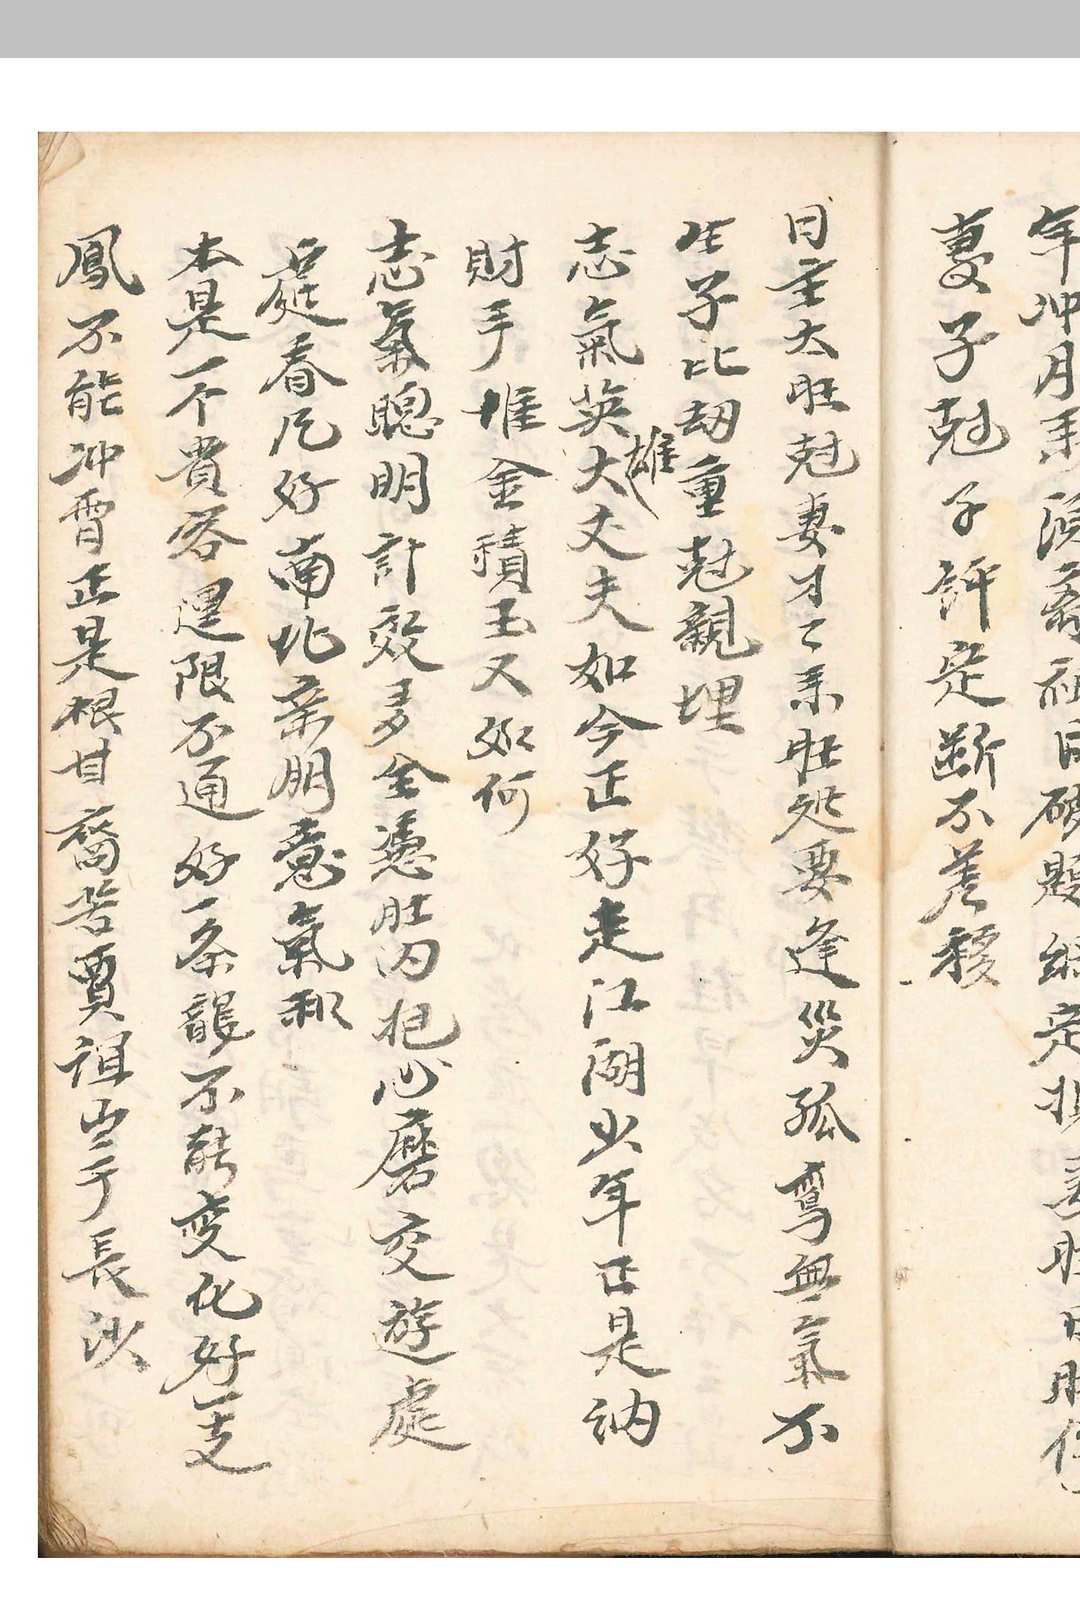 年冲月未須离祖日破殿
妻子尅子許定断不差移
日主太旺尅妻才才未旺処要逢災孤鸾無氣不
生子比劫重尅親埋
志氣英雄大丈夫如今正好走江湖少年正是納
財手堆金積玉又如何
志氣聰明計效多全憑肚内把心磨交遊處
庭春凡好南北亲朋意氣和
本是一个貴容運限不通好一条龍不能变化好一支
鳳不能冲霄正是根甘裔苦賈誼空于長沙